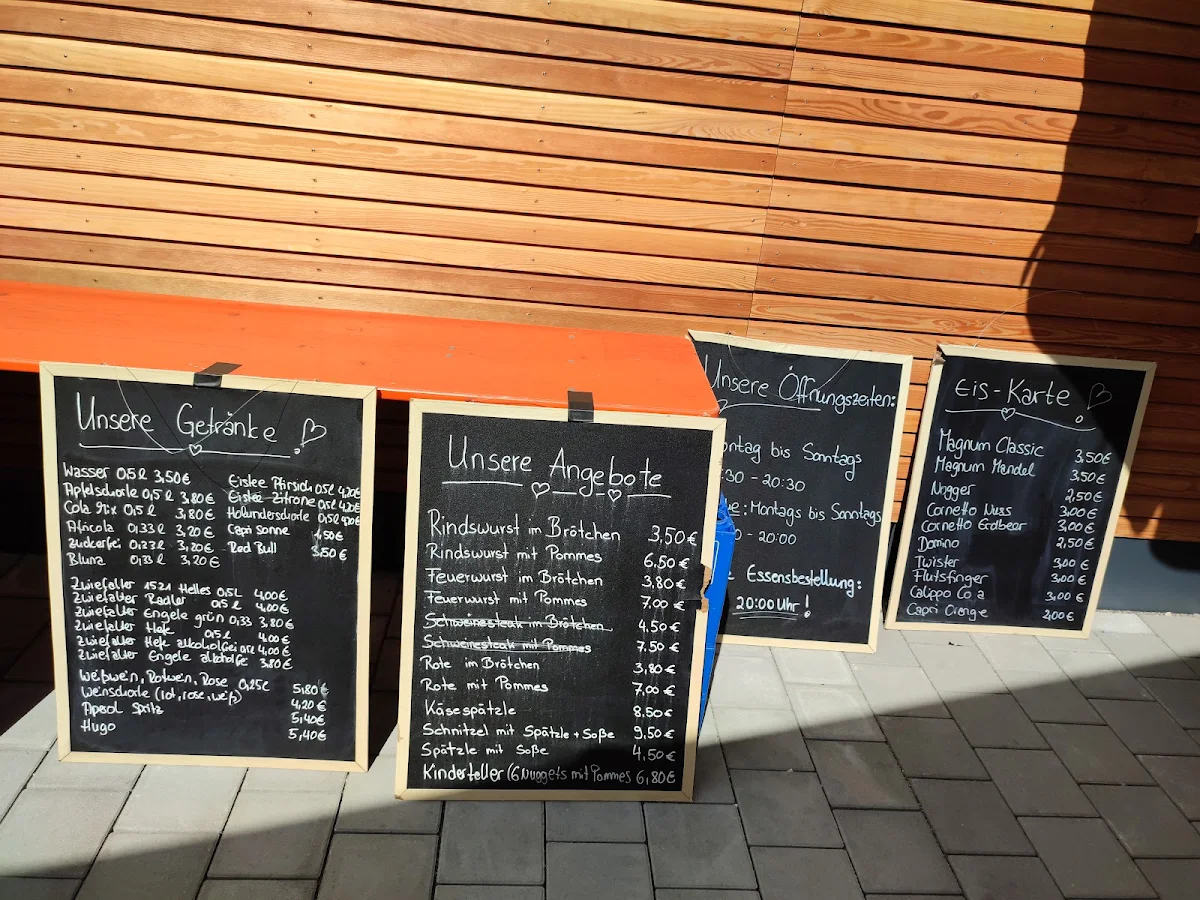 Unsere Getränke
Wasser 0,5l 3,50€
Apfelschorle 0,5l 3,80€
Cola Mix 0,5l 3,80€
Africola 0,33l 3,20€
Zuckerfei 0,33l 3,20€
Bluna 0,33l 3,20€
Eistee Pfirsich 0,5l 4,20€
Eistee Zitrone 0,5l 4,20€
Holunderschorle 0,5l
Capri Sonne 1,50€
Red Bull 3,50€
Zwiefalter 1521 Helles 0,5l 4,00€
Zwiefalter Radler 0,5l 4,00€
Zwiefalter Engele grün 0,33 3,80€
Zwiefalter Hefe 0,5l 4,00€
Zwiefalter Hefe alkoholfrei 4,00€
Zwiefalter Engele alkoholfei 3,80€
Weißwein, Rotwein, Rose 0,25l 5,80€
Weinschorle (rot, rose, weiß) 4,20€
Aperol Spritz 5,40€
Hugo 5,40€
Unsere Angebote
Rindswurst im Brötchen 3,50€
Rindswurst mit Pommes 6,50€
Feuerwurst im Brötchen 3,80€
Feuerwurst mit Pommes 7,00€
Schweinesteak im Brötchen 4,50€
Schweinesteak mit Pommes 7,50€
Rote im Brötchen 3,80€
Rote mit Pommes 7,00€
Käsespätzle 8,50€
Schnitzel mit Spätzle + Soße 9,50€
Spätzle mit Soße 4,50€
Kinderteller (6 Nuggets mit Pommes 6,80€
Unsere Öffnungszeiten:
ontag bis Sonntag
:30 - 20:30
Montags bis Sonntags
0 - 20:00
Essensbestellung:
20:00 Uhr!
Eis-Karte
Magnum Classic 3,50€
Magnum Mandel 3,50€
Nogger 2,50€
Cornetto Nuss 3,00€
Cornetto Erdbeer 3,00€
Domino 2,50€
Twister 3,00€
Flutschfinger 3,00€
Calippo Co a 3,00€
Capri Orenge 2,00€